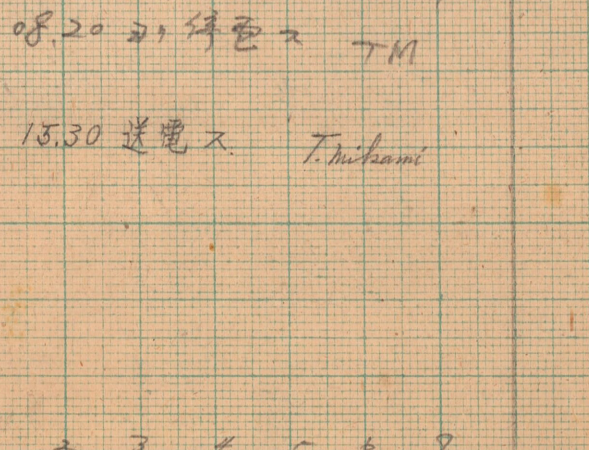 08.20 ヨリ 停電ス TM
15.30 送電ス. T. Mikami
2 3 4 5 6